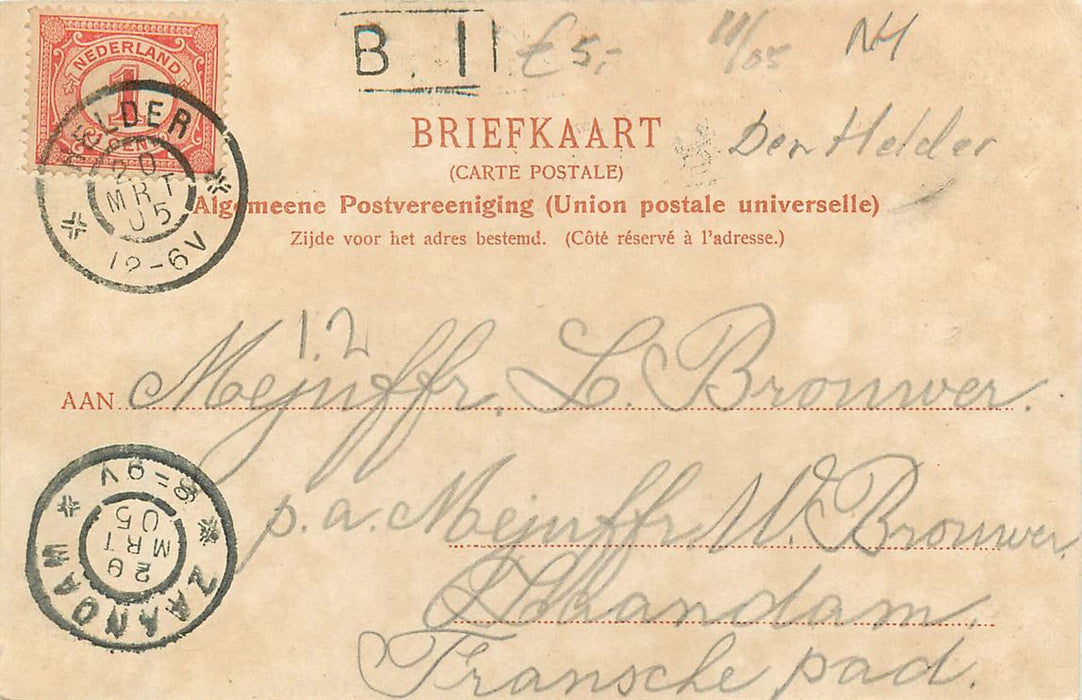 NEDERLAND
1
CENT
HELDER
20
MRT
05
12-6V
B. II
£ 5,-
III/05
NH
BRIEFKAART
Den Helder
(CARTE POSTALE)
Algemeene Postvereeniging (Union postale universelle)
Zijde voor het adres bestemd. (Côté réservé à l'adresse.)
1.2
AAN Mejuffr. L. Brouwer.
p.a. Mejuffr. W. Brouwer
Zaandam.
Fransche pad.
ZAANDAM
20
MRT
05
8=9V